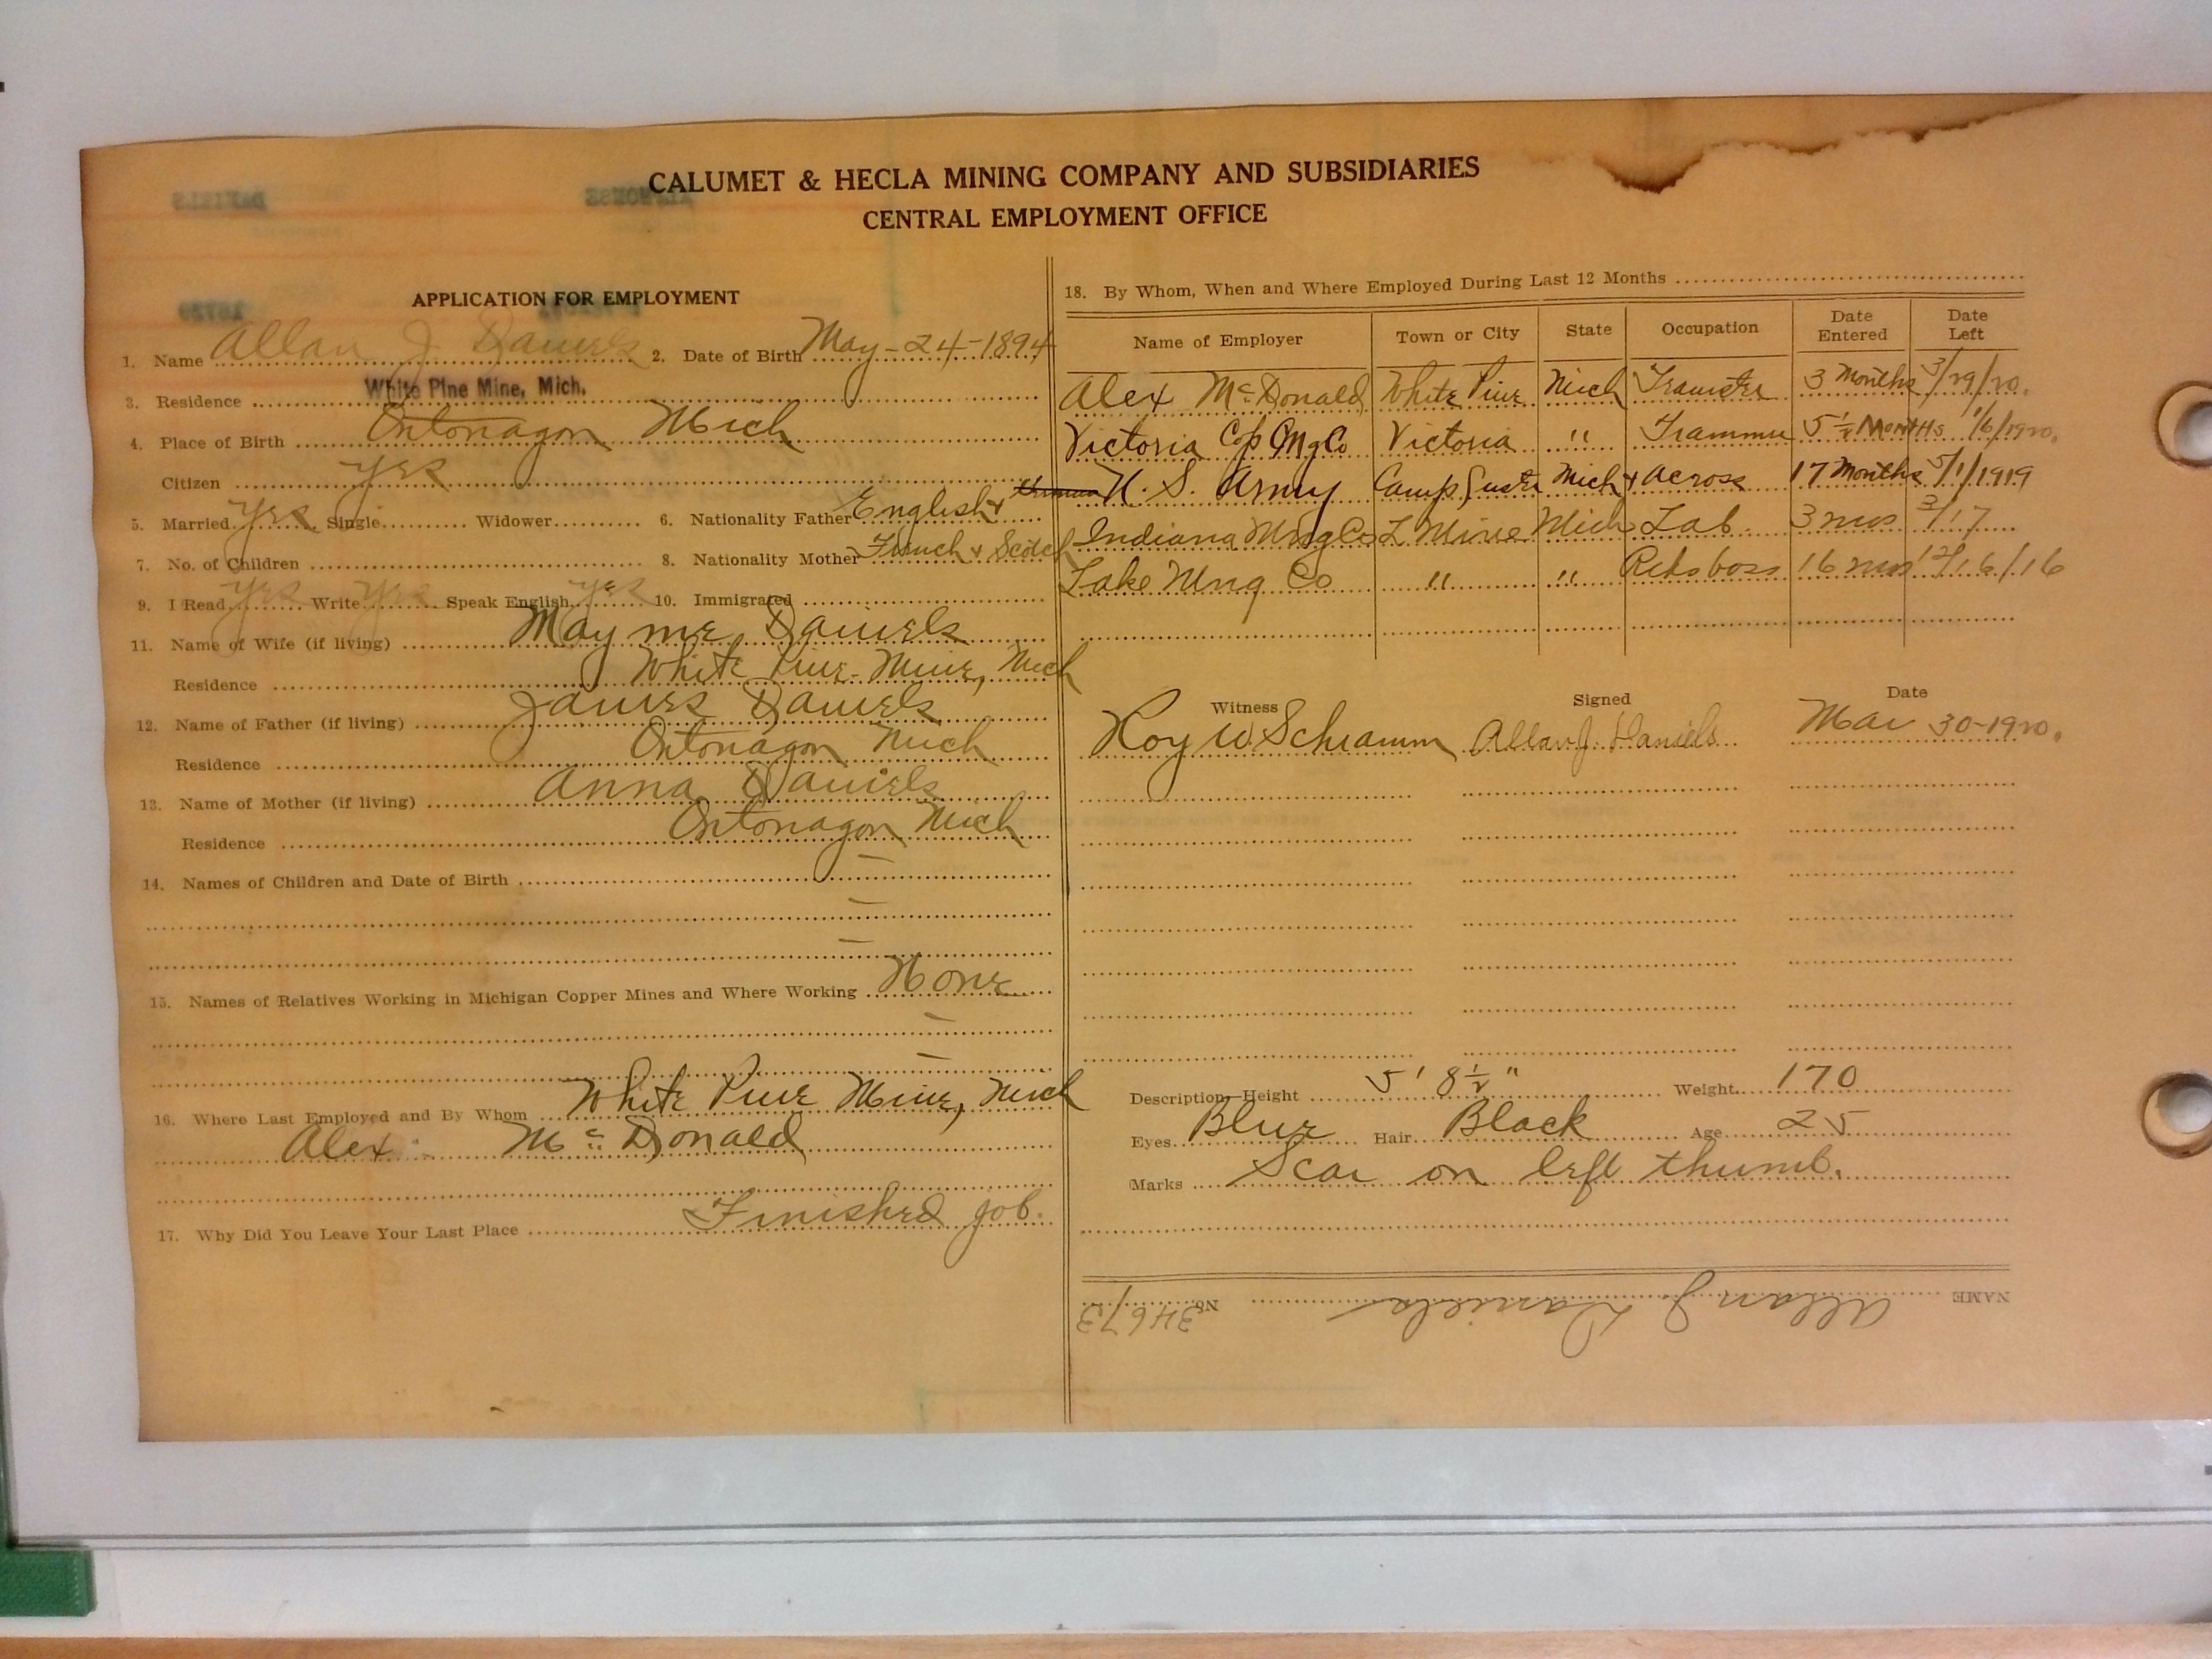 CALUMET & HECLA MINING COMPANY AND SUBSIDIARIES
CENTRAL EMPLOYMENT OFFICE
APPLICATION FOR EMPLOYMENT
1. Name Allan J Daniels 2. Date of Birth May-24-1894
3. Residence White Pine Mine, Mich.
4. Place of Birth Ontonagon Mich
Citizen yes
5. Married yes Single Widower 6. Nationality Father English &
7. No. of Children 8. Nationality Mother French & Scotch
9. I Read yes Write yes Speak English yes 10. Immigrated
11. Name of Wife (if living) Mayme Daniels
Residence White Pine Mine, Mich
12. Name of Father (if living) James Daniels
Residence Ontonagon Mich
13. Name of Mother (if living) Anna Daniels
Residence Ontonagon Mich
14. Names of Children and Date of Birth —
—
—
15. Names of Relatives Working in Michigan Copper Mines and Where Working None
—
—
16. Where Last Employed and By Whom White Pine Mine, Mich
Alex McDonald
17. Why Did You Leave Your Last Place Finished job.
18. By Whom, When and Where Employed During Last 12 Months
Name of Employer Town or City State Occupation Date Entered Date Left
Alex McDonald White Pine Mich Teamster 3 Months 3/29/20.
Victoria Cop Mg Co Victoria " Trammer 5 1/2 MONTHS 1/6/1920.
U. S. Army Camp Custer Mich & Across 17 Months 5/1/1919
Indiana Mng Co L Mine Mich Lab. 3 mos 3/17
Lake Mng Co " " boss 16 mos 12/16/16
Witness Signed Date
Roy W Schramm Allan J. Daniels Mar 30-1920.
Description—Height 5' 8 1/2" Weight 170
Eyes Blue Hair Black Age 25
Marks Scar on left thumb.
NAME Allan J. Daniels No. 34673